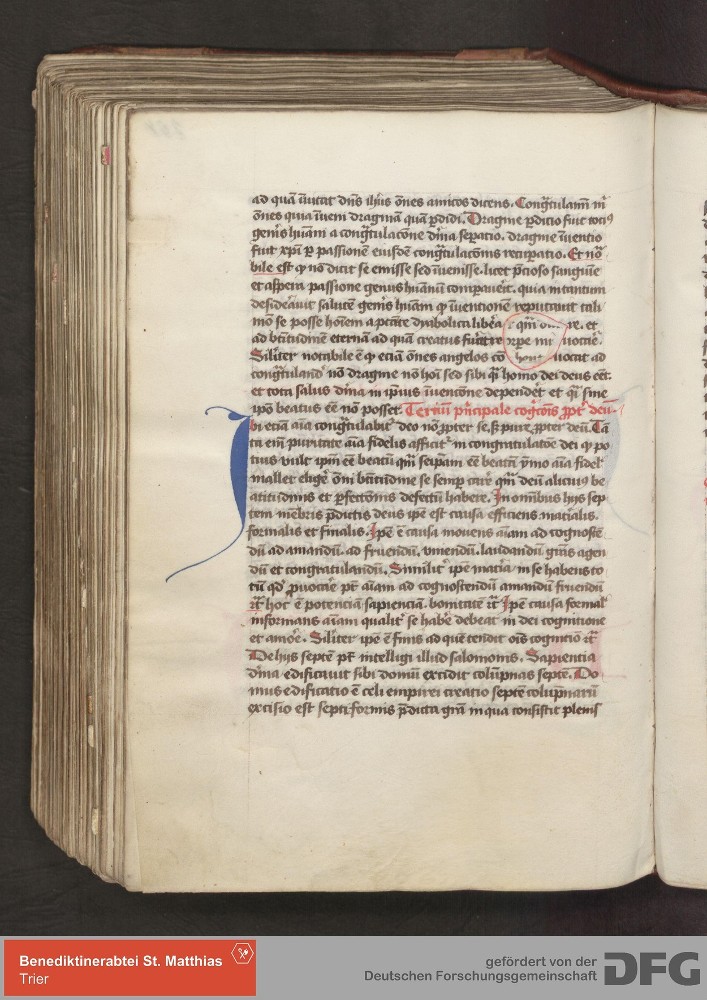 ad quā īuitat dn̄s ih̄us om̄es amicos dicens. Congͣtulamī m
om̄es quia īueni dragmā quā ꝑdidi. Dragme ꝑditio fuit toti9
geneis huāni a congͣtulacōne diuīa seꝑatio. dragme īuentio
fuit xp̄i ꝑ passionē eiusdē congͣtulacōnis recuꝑatio. Et no
bile est ꝙ nō dicit se emisse sed īuenisse. licet p̄cioso sanguīe
et aspera passione genus huānū compauerit. quia in tantum
desiderauit salutē gen̄is huāni ꝙ īuentionē reputauit tali
mō se posse hoīem a ptāte dyabolica libera re. et
ad btītudinē eternā ad quā creatus
Silīter notabile ē ꝙ eciā om̄es angelos cō uocat ad
congͣtulandū nō dragme nō hoī sed sibi qͥ homo dei deus eēt.
et tota salus diuīa in ip̄ius īuentōne dependet et qͥ sine
ip̄o beatus eē nō posset. Terciū pͥncipale cogͥcōis ꝓpt' deū
bi eciā aīa congͣtulabit' deo nō ꝓpter se. sꝫ pure ꝓpter deū. Tā
ta em̄ puritate aīa fidelis afficit' in congratulatōe dei ꝙ po
tius vult ip̄m eē beatū qͣm seip̄am eē beatā ymo aīa fidel'
mallet elige' om̄i btītudine se semꝑ care' qͣm deū alicui9 be
atitudinis et ꝑfectōnis defectū habere. In omnibus hijs sep
tem mēbris p̄dictis deus ip̄e est causa efficiens mat'ialis.
formalis et finalis. Ip̄e ē causa mouens aīam ad cognoscē
dū ad amandū. ad fruendū. vniendū. laudandū gr̄as agen
dū et congratulandū. Similit' ip̄e matīa in se habens to
tū qd' ꝓuocare pt' aīam ad cognoscendū amandū fruendū
⁊c̄ hoc ē potenciā sapienciā. bonitatē ⁊c̄ Ip̄e causa formal'
informans aīam qualit' se habe' debeat in dei cognitione
et amore. Silīter ip̄e ē finis ad quē tendit oīs cognicio ⁊c̄
De hijs septē pt' intelligi illud salomonis. Sapientia
diuīa edificauit sibi domū excidit colūpnas septē. Do
mus edificatio ē celi empirei creatio septē colūpnarū
excisio est septiformis p̄dicta gr̄a in qua consistit plenis
Benediktinerabtei St. Matthias
Trier
gefördert von der
Deutschen Forschungsgemeinschaft DFG